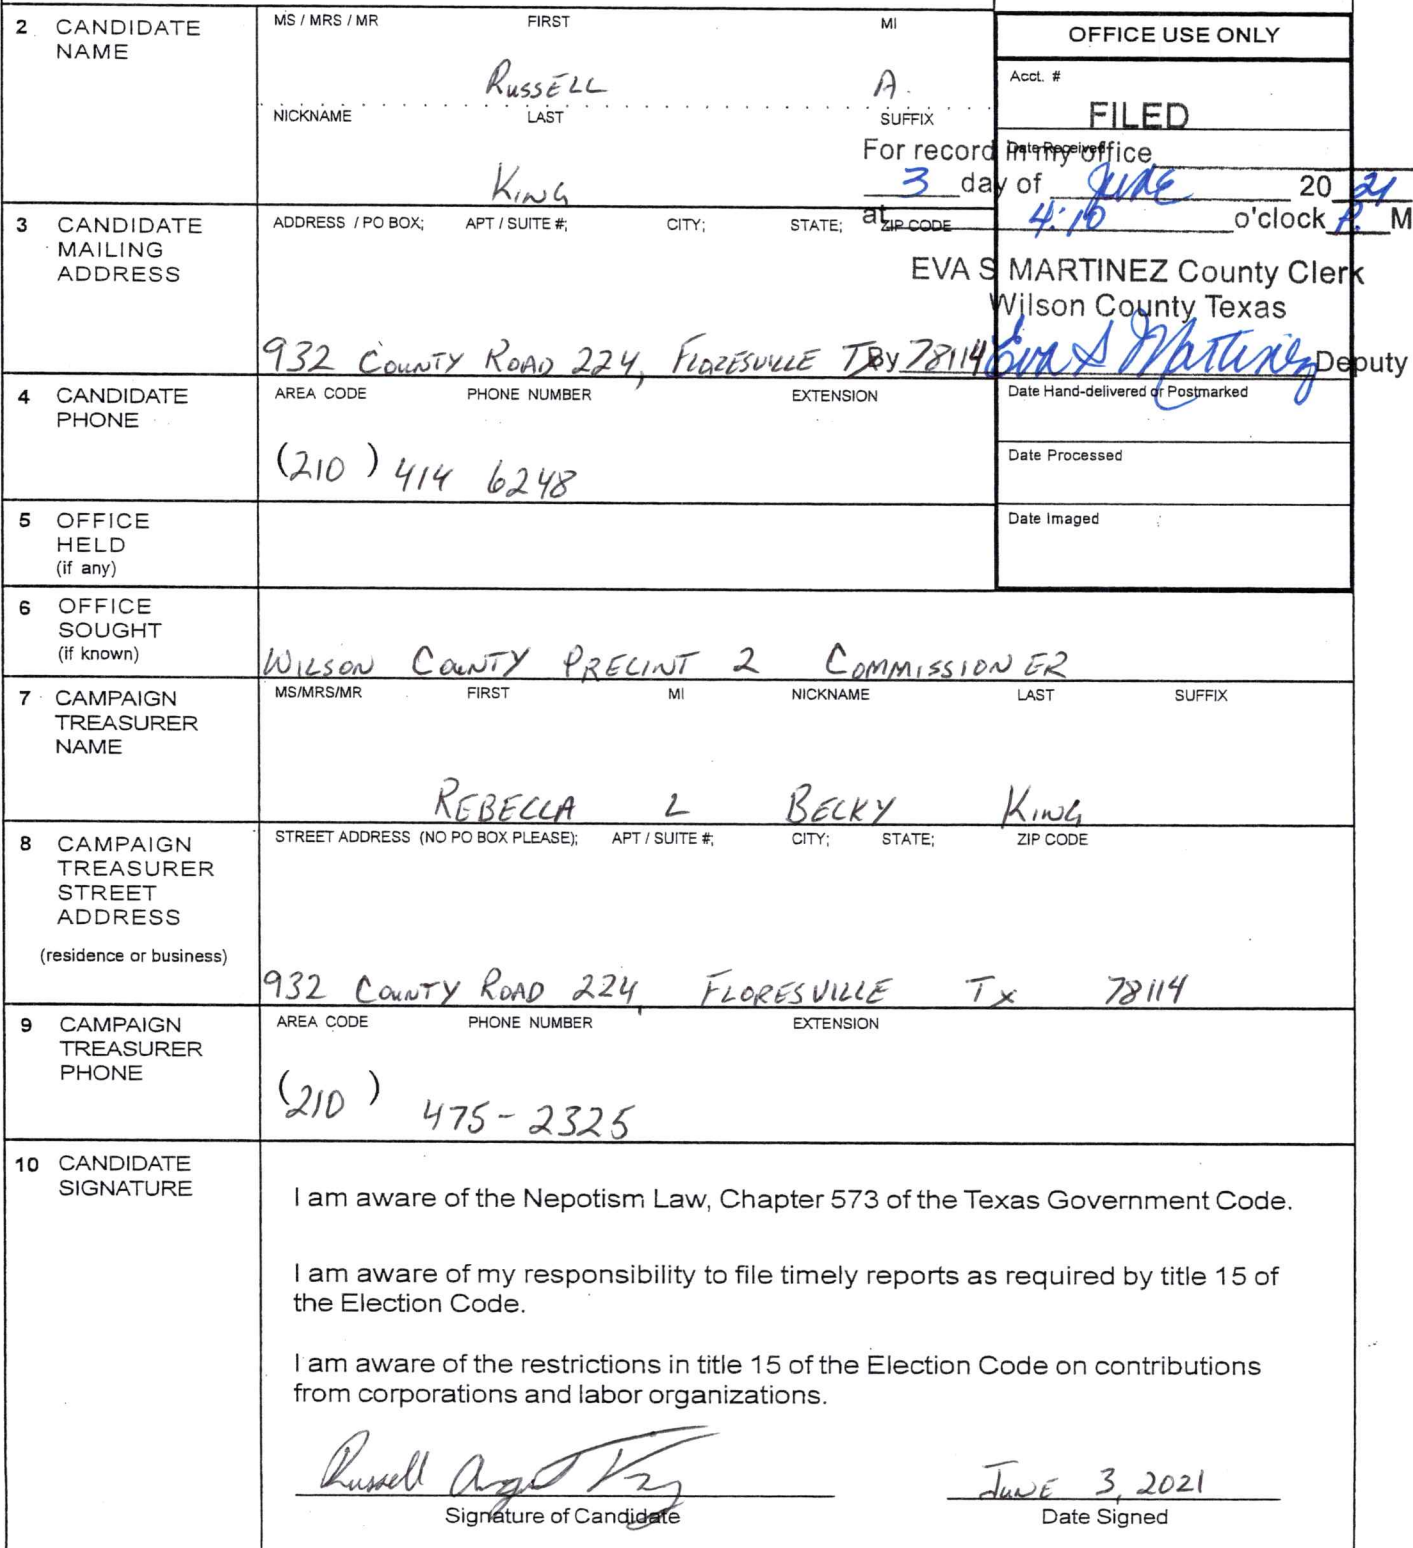 2 CANDIDATE NAME
MS / MRS / MR FIRST MI
RUSSELL A.
NICKNAME LAST SUFFIX
KING
OFFICE USE ONLY
Acct. #
FILED
Date Received
For record in my office
3 day of JUNE 20 21
at 4:10 o'clock P. M
EVA S MARTINEZ County Clerk
Wilson County Texas
By Eva S Martinez Deputy
Date Hand-delivered or Postmarked
Date Processed
Date Imaged
3 CANDIDATE MAILING ADDRESS
ADDRESS / PO BOX; APT / SUITE #; CITY; STATE; ZIP CODE
932 COUNTY ROAD 224, FLORESVILLE TX 78114
4 CANDIDATE PHONE
AREA CODE PHONE NUMBER EXTENSION
(210 ) 414 6248
5 OFFICE HELD
(if any)
6 OFFICE SOUGHT
(if known)
WILSON COUNTY PRECINT 2 COMMISSIONER
7 CAMPAIGN TREASURER NAME
MS/MRS/MR FIRST MI NICKNAME LAST SUFFIX
REBECCA L BECKY KING
8 CAMPAIGN TREASURER STREET ADDRESS
(residence or business)
STREET ADDRESS (NO PO BOX PLEASE); APT / SUITE #; CITY; STATE; ZIP CODE
932 COUNTY ROAD 224, FLORESVILLE TX 78114
9 CAMPAIGN TREASURER PHONE
AREA CODE PHONE NUMBER EXTENSION
(210 ) 475-2325
10 CANDIDATE SIGNATURE
I am aware of the Nepotism Law, Chapter 573 of the Texas Government Code.
I am aware of my responsibility to file timely reports as required by title 15 of
the Election Code.
I am aware of the restrictions in title 15 of the Election Code on contributions
from corporations and labor organizations.
Russell August King
JUNE 3, 2021
Signature of Candidate Date Signed